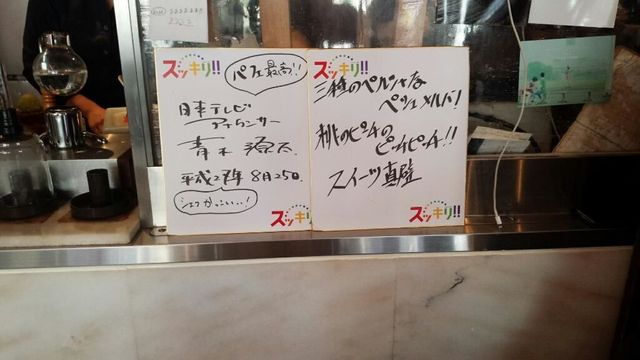 スッキリ!!
パフェ最高!!
日本テレビ
アナウンサー
青木源太
平成27年8月25日
シェフかっこいい!
スッキリ
スッキリ!!
三種のペルシャな
ペシェメルバ!
桃のピーチの
ピーチピーチ!!
スイーツ真壁
スッキリ!!